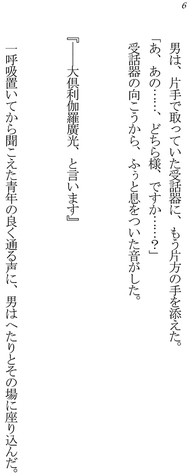 6
男は、片手で取っていた受話器に、もう片方の手を添えた。
「あ、あの……、どちら様、ですか……？」
受話器の向こうから、ふぅと息をついた音がした。
『――大倶利伽羅廣光、と言います』
一呼吸置いてから聞こえた青年の良く通る声に、男はへたりとその場に座り込んだ。